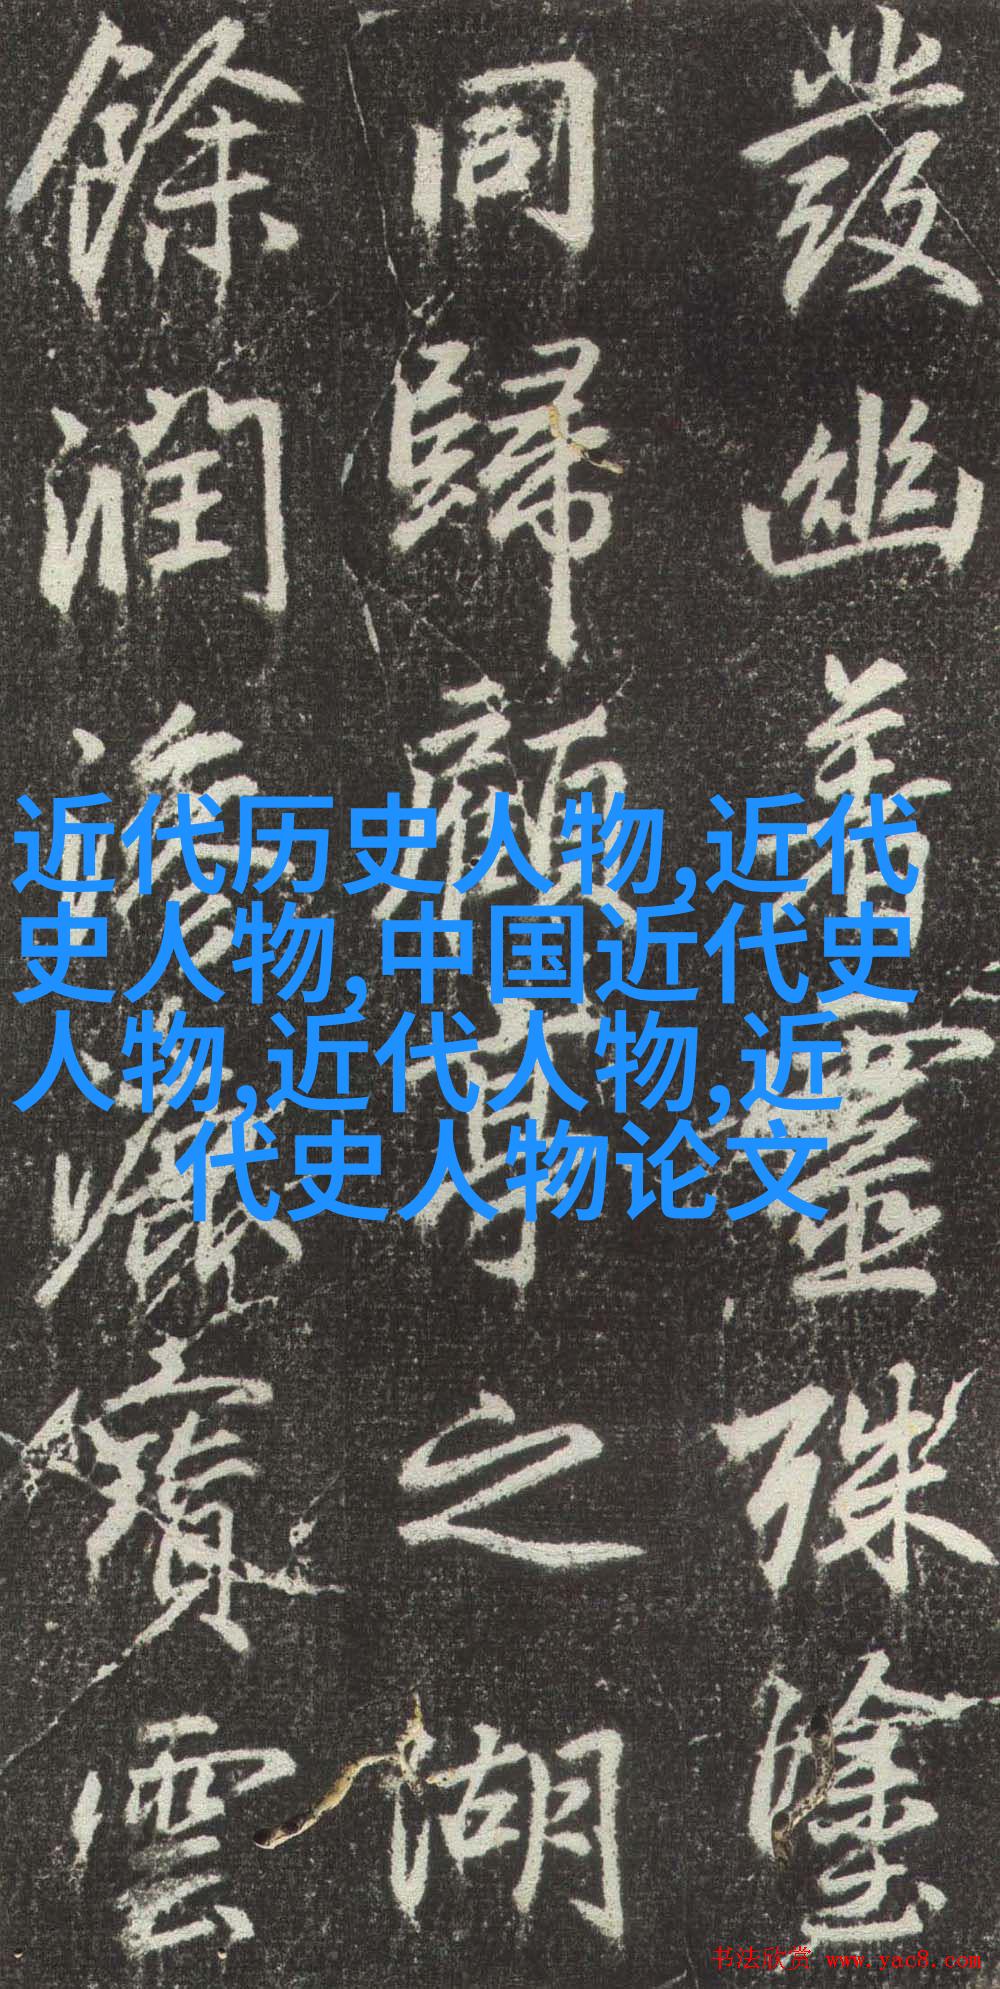 發幽著靈殊塗
同歸顧之湖
餘潤雲
近代历史人物,近代
史人物,中国近代史
人物,近代人物,近
代史人物论文
书法欣赏 www.yac8.com